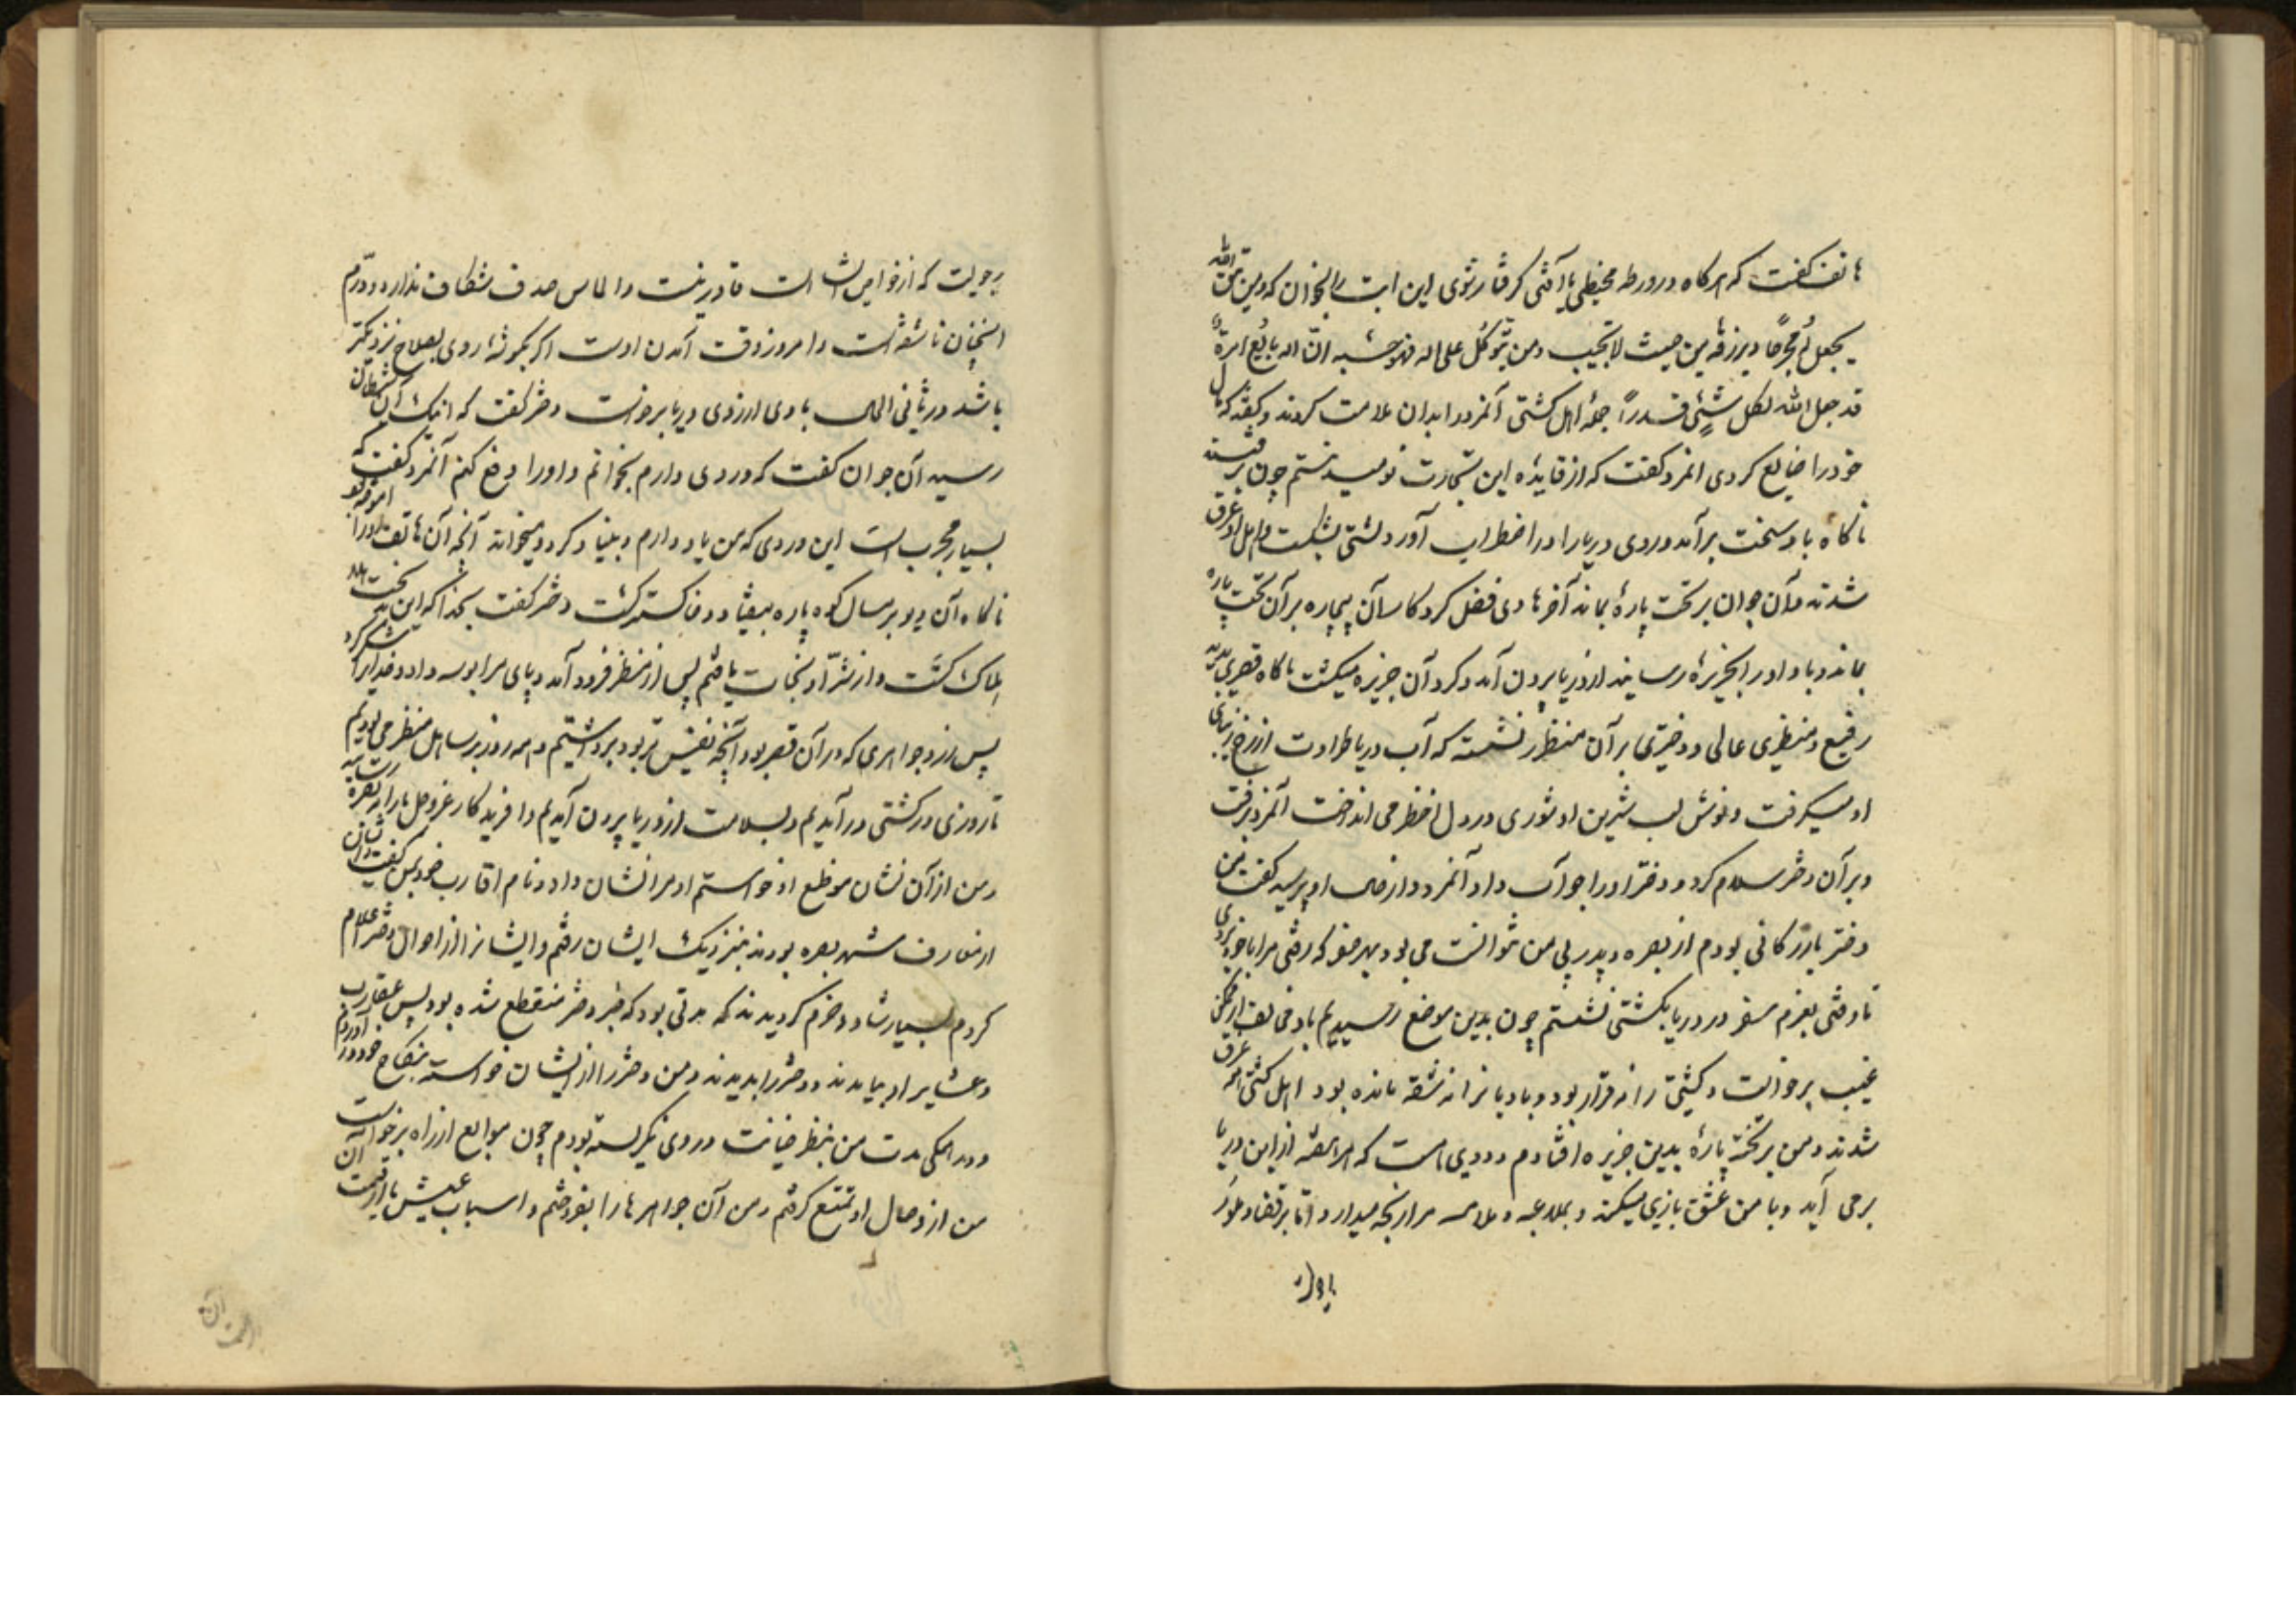 هاتف گفت که هرگاه در ورطه مخیطی یا آفتی گرفتار شوی این آیت را بخوان که ومن یتق الله
یجعل له مخرجا ویرزقه من حیث لا یحتسب ومن یتوکل علی الله فهو حسبه ان الله بالغ امره
قد جعل الله لکل شئی قدرا جمله اهل کشتی آنمرد را بدان ملامت کردند وگفتند که مال
خود را ضایع کردی انمرد گفت که از فایده این تجارت نومید نیستم چون برفتند
ناگاه باد سخت برآمد وروی دریا را در اضطراب آورد کشتی بشکست واهل او غرق
شدند وآن جوان بر تخت پاره بماند آخر هادی فضل کردکار آن بیچاره بر آن تخت پاره
بماند وباد او را بجزیره رسانید از دریا بیرون آمد وگرد آن جزیره میگشت ناگاه قصری بدید
رفیع ومنظری عالی ودختری بر آن منظر نشسته که آب دریا طراوت از رخ زیبای
او میگرفت ونوش لب شیرین او شوری در دل اخضر می انداخت آنمرد برفت
وبر آن دختر سلام کرد ودختر او را جواب داد آنمرد از حال او پرسید گفت من
دختر بازرگانی بودم از بصره وپدر بی من نتوانست می بود وبهر سفر که رفتی مرا با خود بردی
تا وقتی بعزم سفر در دریا بکشتی نشستم چون بدین موضع رسیدیم باد مخالف از ممکن
غیب برخواست وکشتی را نه قرار بود وبادبانرا نه شقه مانده بود اهل کشتی همه غرق
شدند ومن بر تخته پارهٔ بدین جزیره افتادم ودیوی است که هر هفته از این دریا
برمی آید وبا من عشق بازی میکند وبملاعبه وملامسه مرا رنجه میدارد واما بر قضاء وطر
رجولیت که از خواص انسان است قادر نیست والماس صدف شکاف ندارد ودرم
همچنان ناسفته است وامروز وقت آمدن اوست اگر بگوشهٔ روی بصلاح نزدیکتر
باشد در ثانی الحال بادی از روی دریا برخواست دختر گفت که اینک آن شیطان
رسید آن جوان گفت که وردی دارم بخوانم واورا دفع کنم آنمرد گفت که
بسیار مجرب است این وردی که من یاد دارم وبنیاد کرد ومیخواند آنچه آن هاتف اورا آموخته بود
ناگاه آن دیو بر مثال کوه پاره بیفتاد وخاکستر گشت دختر گفت بخدا که این بدبخت
هلاک گشت واز شر او نجات یافتم پس از منظر فرود آمد وپای مرا بوسه داد وخدایرا شکر کرد
پس از زر وجواهری که در آن قصر بود آنچه نفیس تر بود برداشتیم وهمه روز بر ساحل منتظر می بودیم
تا روزی در کشتی در آمدیم وبسلامت از دریا بیرون آمدیم وافریدکار عز وجل ما را ببصره رسانید
ومن از آن نشان موضع او خواستم او مرا نشان داد ونام اقارب خود بمن گفت وایشان
از معارف شهر بصره بودند بنزدیک ایشان رفتم وایشانرا از احوال دختر اعلام
کردم بسیار شاد وخرم گردیدند که مدتی بود که خبر دختر منقطع شده بود پس اقارب
وعشایر او بیامدند ودختر را بدیدند ومن دختر را از ایشان خواستم بنکاح خود در آوردم
ودر همگی مدت من بنظر خیانت در وی نگریسته بودم چون موانع از راه برخواست
من از وصال او تمتع گرفتم ومن آن جواهرها را بفروختم واسباب عیش ما از قیمت آن